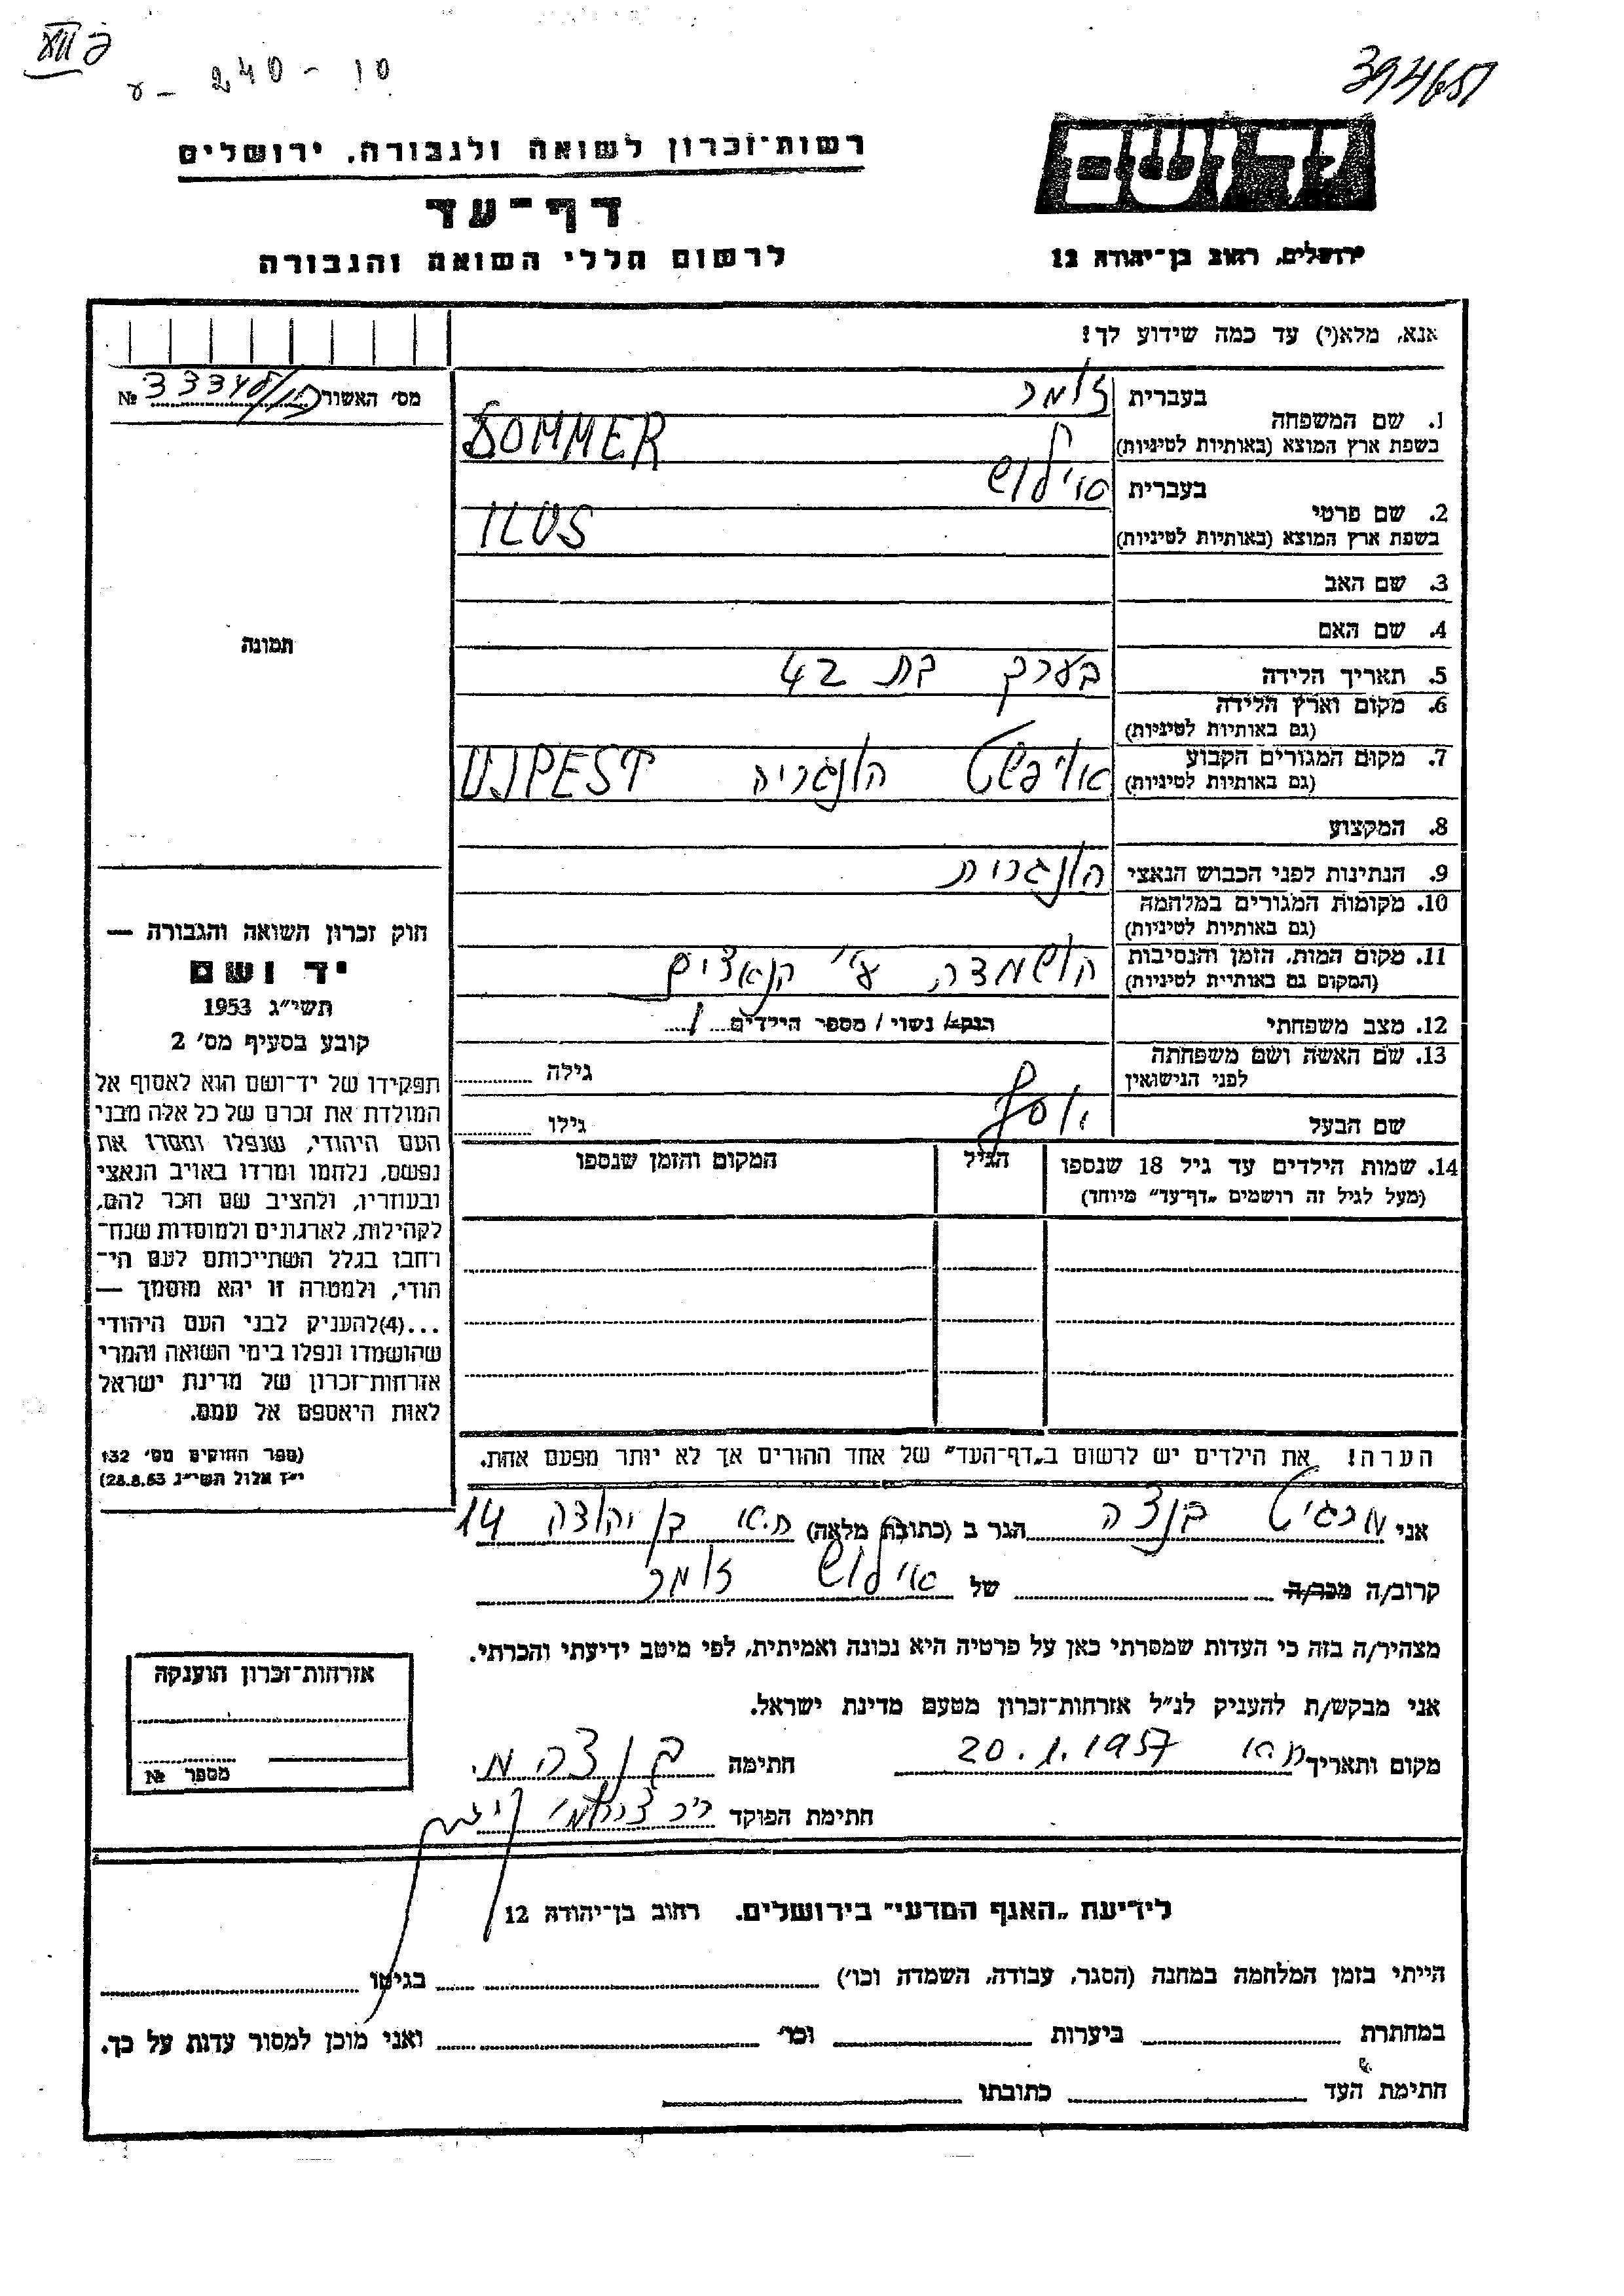 394651
240-10
יד ושם
רשות-זכרון לשואה ולגבורה, ירושלים
דף-עד
לרשום חללי השואה והגבורה
ירושלים, רחוב בן-יהודה 12
אנא, מלא(י) עד כמה שידוע לך!
מס' האשור №
1. שם המשפחה
בעברית זומר
בשפת ארץ המוצא (באותיות לטיניות) SOMMER
2. שם פרטי
בעברית אילוש
בשפת ארץ המוצא (באותיות לטיניות) ILUS
3. שם האב
4. שם האם
תמונה
5. תאריך הלידה בערך בת 42
6. מקום וארץ הלידה
(גם באותיות לטיניות)
7. מקום המגורים הקבוע אויפשט הונגריה UJPEST
(גם באותיות לטיניות)
8. המקצוע
9. הנתינות לפני הכבוש הנאצי הונגרית
10. מקומות המגורים במלחמה
(גם באותיות לטיניות)
11. מקום המות, הזמן והנסיבות הושמדה ע"י הנאצים
(המקום גם באותיית לטיניות)
12. מצב משפחתי רווק/ נשוי / מספר הילדים 1
13. שם האשה ושם משפחתה גילה
לפני הנישואין
שם הבעל יוסף גילו
14. שמות הילדים עד גיל 18 שנספו הגיל המקום והזמן שנספו
(מעל לגיל זה רושמים „דף-עד" מיוחד)
חוק זכרון השואה והגבורה —
יד ושם
תשי"ג 1953
קובע בסעיף מס' 2
תפקידו של יד-ושם הוא לאסוף אל
המולדת את זכרם של כל אלה מבני
העם היהודי, שנפלו ומסרו את
נפשם, נלחמו ומרדו באויב הנאצי
ובעוזריו, ולהציב שם וזכר להם,
לקהילות, לארגונים ולמוסדות שנח-
רחבו בגלל השתייכותם לעם הי-
הודי, ולמטרה זו יהא מוסמך —
...(4)להעניק לבני העם היהודי
שהושמדו ונפלו בימי השואה והמרי
אזרחות-זכרון של מדינת ישראל
לאות היאספם אל עמם.
(ספר החוקים מס' 132
י"ז אלול תשי"ג 28.8.53)
הערה! את הילדים יש לרשום ב„דף-העד" של אחד ההורים אך לא יותר מפעם אחת.
אני מרגיט בנצה הגר ב (כתובת מלאה) ת.א בן יהודה 14
קרוב/ה מכר/ה של אילוש זומר
מצהיר/ה בזה כי העדות שמסרתי כאן על פרטיה היא נכונה ואמיתית, לפי מיטב ידיעתי והכרתי.
אני מבקש/ת להעניק לנ"ל אזרחות-זכרון מטעם מדינת ישראל.
מקום ותאריך 20.1.1957 חתימה בנצה מ.
חתימת הפוקד
אזרחות-זכרון הוענקה
מספר №
לידיעת „האגף המדעי" בירושלים. רחוב בן-יהודה 12
הייתי בזמן המלחמה במחנה (הסגר, עבודה, השמדה וכו') בגיטו
במחתרת ביערות וכו' ואני מוכן למסור עדות על כך.
חתימת העד כתובתו